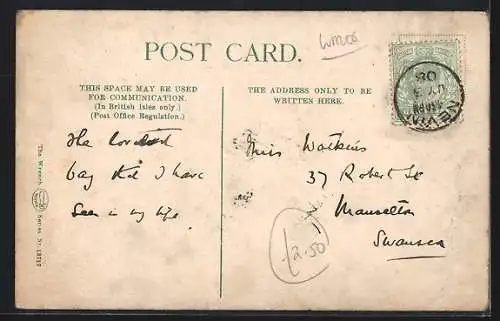 POST CARD.
THIS SPACE MAY BE USED
FOR COMMUNICATION.
(In British Isles only.)
(Post Office Regulation.)
THE ADDRESS ONLY TO BE
WRITTEN HERE.
The loveliest
bay that I have
Seen in my life.
Miss Watkins
37 Robert St
Manselton
Swansea
2.50
The Wrench Series, No. 12117